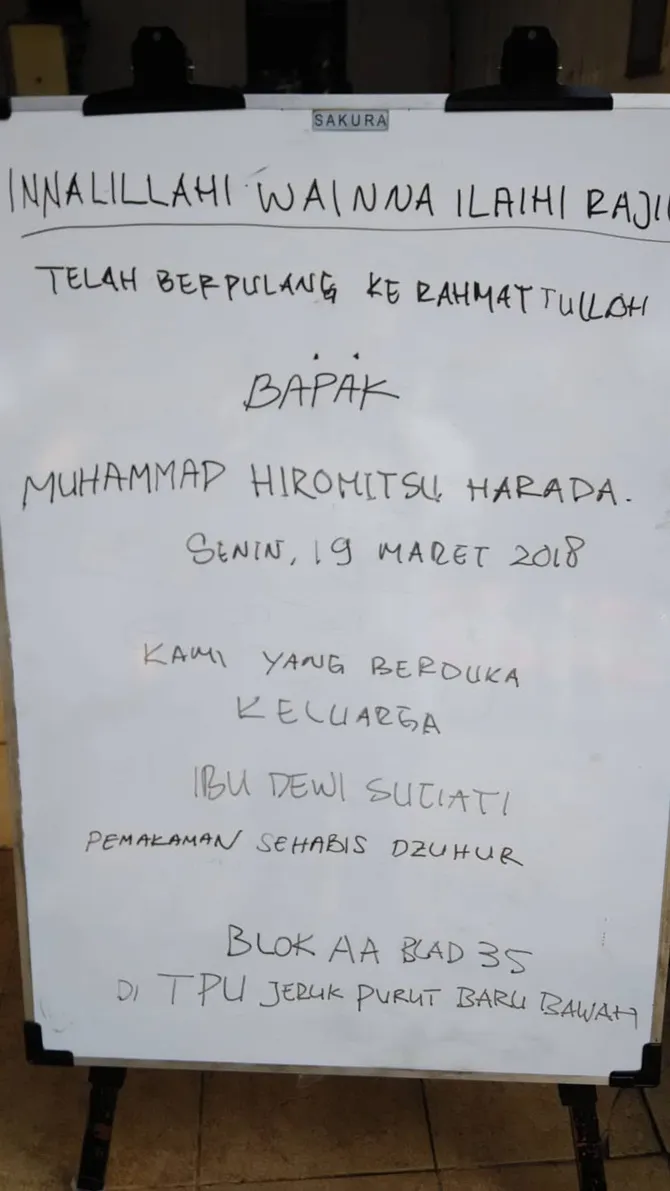 SAKURA
INNALILLAHI WAINNA ILAIHI RAJI
TELAH BERPULANG KE RAHMATTULLAH
BAPAK
MUHAMMAD HIROMITSU HARADA.
SENIN, 19 MARET 2018
KAMI YANG BERDUKA
KELUARGA
IBU DEWI SUCIATI
PEMAKAMAN SEHABIS DZUHUR
BLOK AA BLAD 35
DI TPU JERUK PURUT BARU BAWAH